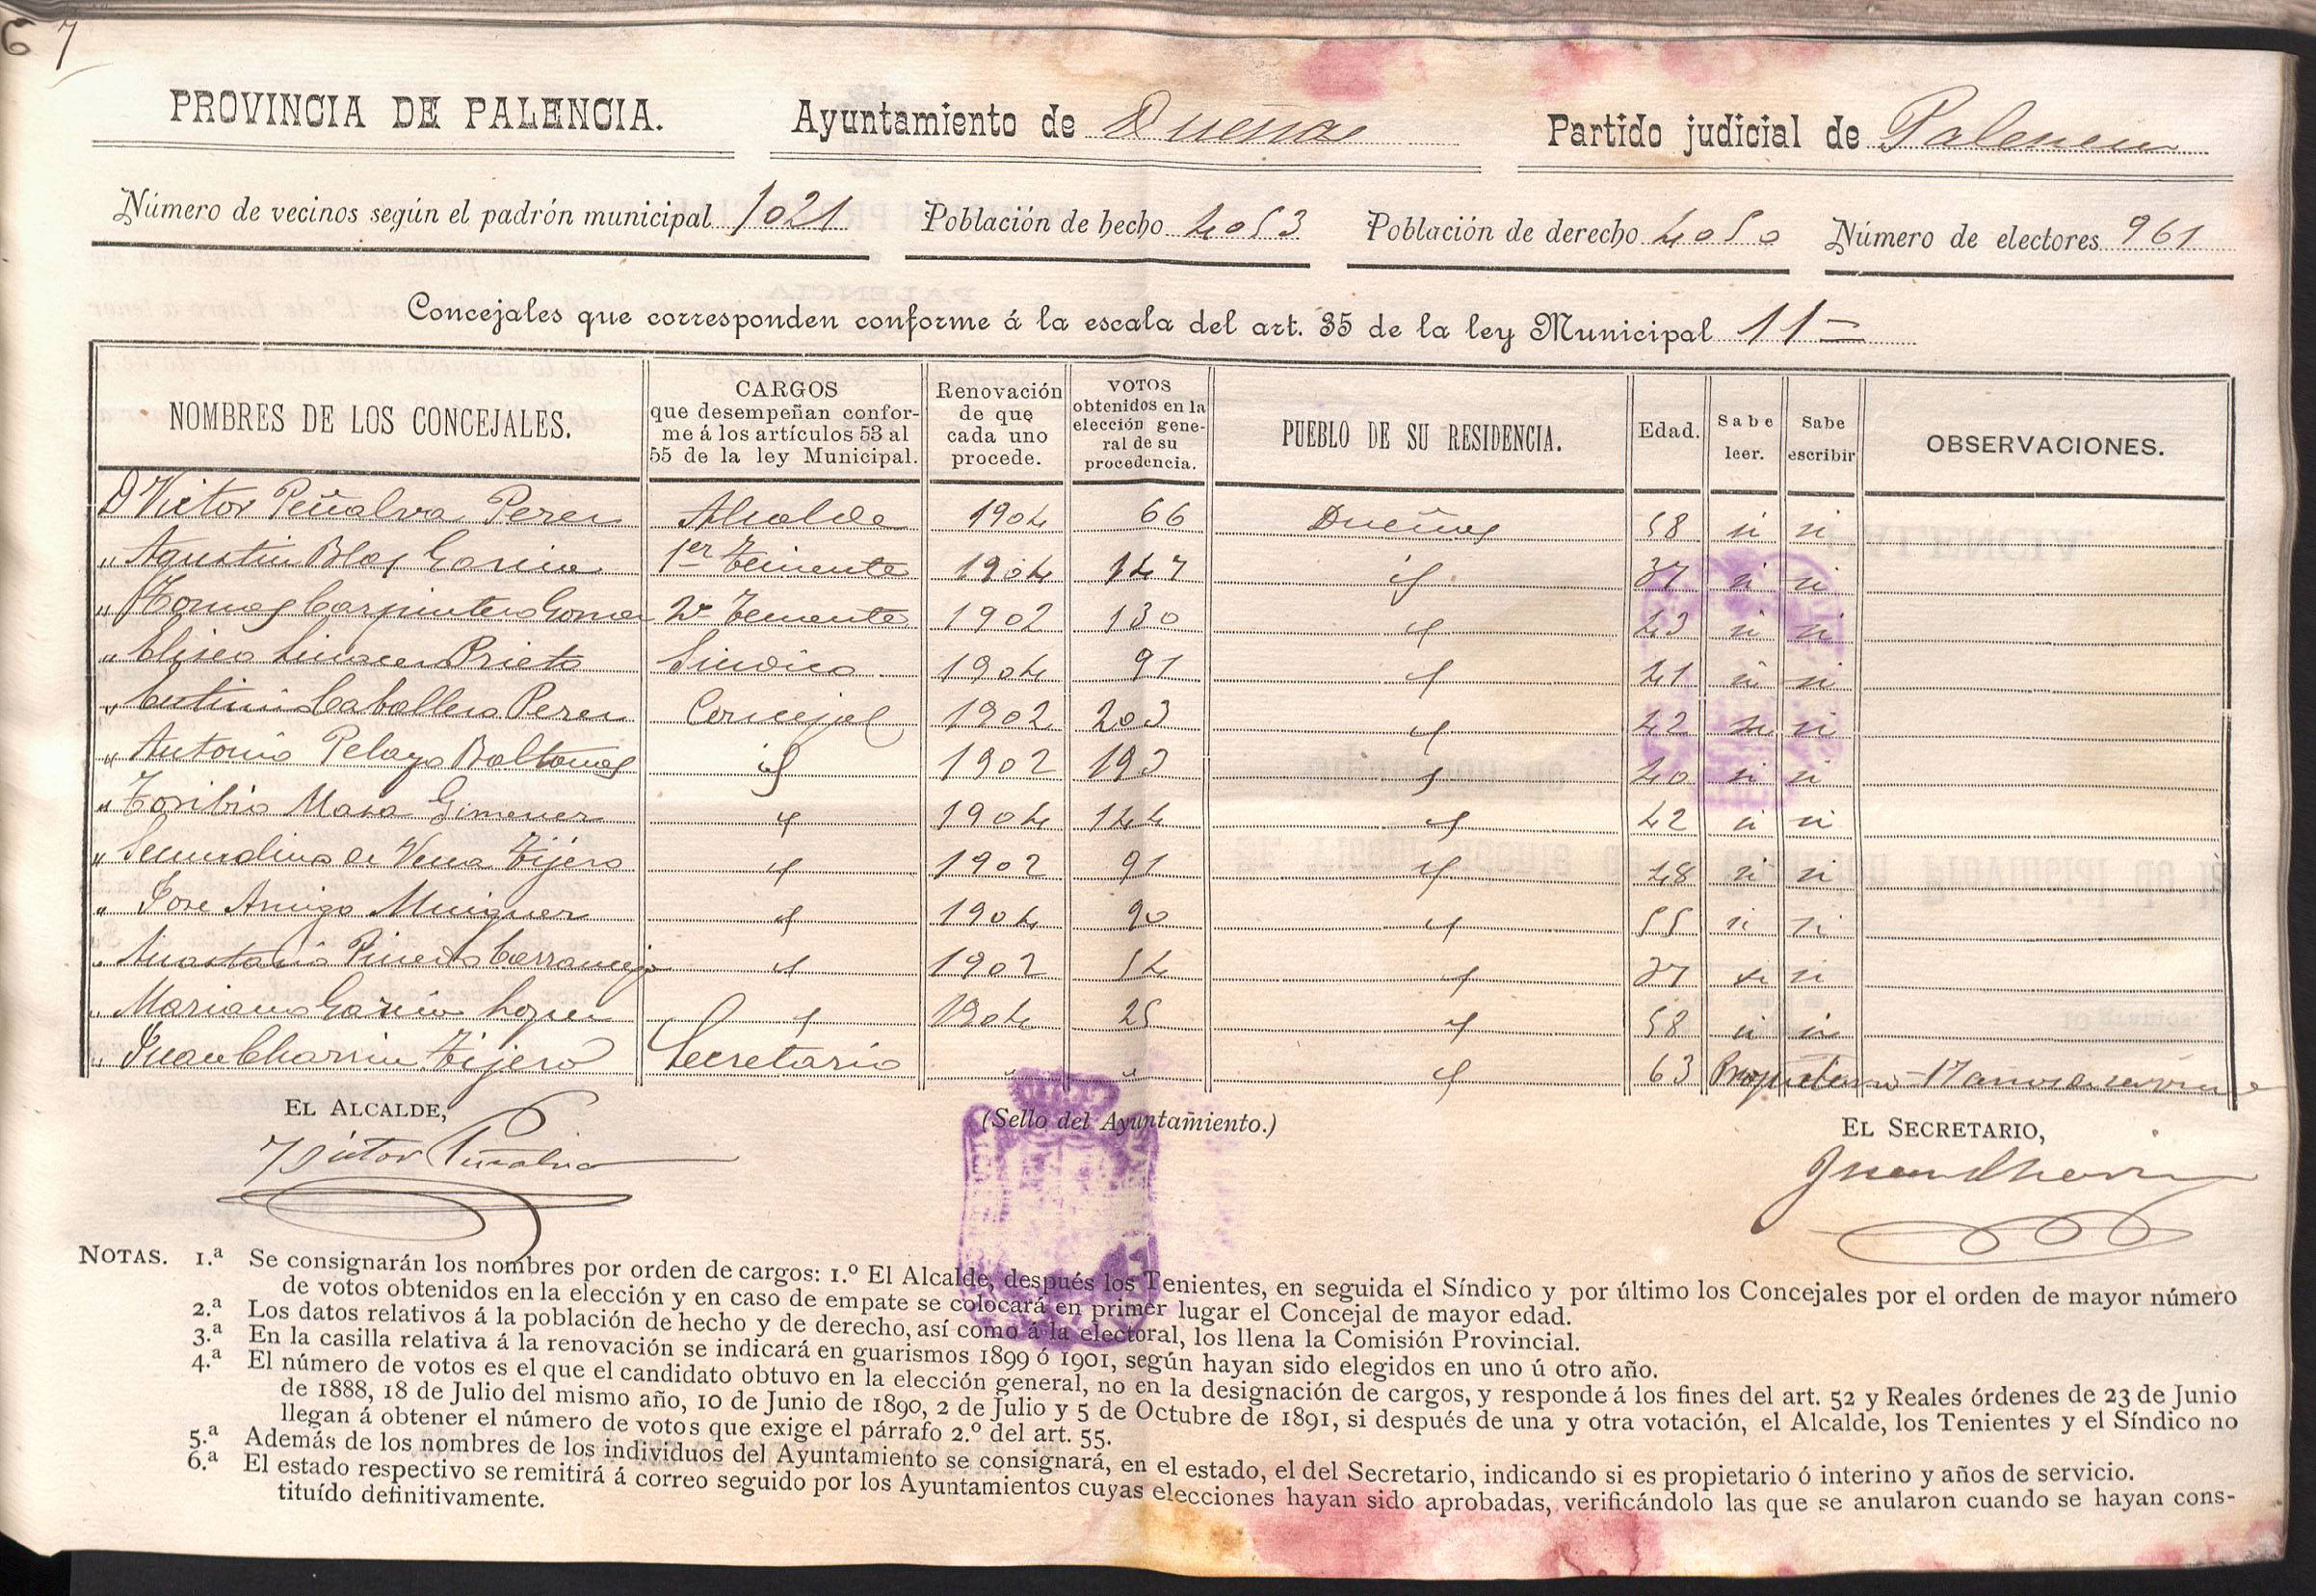 6 7
PROVINCIA DE PALENCIA. Ayuntamiento de Dueñas Partido judicial de Palencia
Número de vecinos según el padrón municipal 1021 Población de hecho 4053 Población de derecho 4050 Número de electores 961
Concejales que corresponden conforme á la escala del art. 35 de la ley Municipal 11 =
NOMBRES DE LOS CONCEJALES. CARGOS que desempeñan conforme á los artículos 53 al 55 de la ley Municipal. Renovación de que cada uno procede. VOTOS obtenidos en la elección general de su procedencia. PUEBLO DE SU RESIDENCIA. Edad. Sabe leer. Sabe escribir OBSERVACIONES.
D Victor Peñalva Perez Alcalde 1904 66 Dueñas 58 si si
" Agustin Blas Garcia 1er Teniente 1904 147 id 37 si si
" Tomas Carpintero Gomez 2º Teniente 1902 130 id 43 si si
" Eliseo Linacer Prieto Sindico 1904 91 id 41 si si
" Caballero Perez Concejal 1902 203 id 42 si si
" Antonio Pelayo Baltanas id 1902 193 id 40 si si
" Toribio Masa Gimenez id 1904 144 id 42 si si
" Secundino de Vena Tijero id 1902 91 id 48 si si
" Jose Amigo Muiguez id 1904 90 id 55 si si
" Anastasio Pinedo Carrancejo id 1902 54 id 37 si si
" Mariano Garcia Lopez id 1904 25 id 58 si si
" Juan Charrin Tijero Secretario " " id 63 Propietario - 17 años de servicio
EL ALCALDE, (Sello del Ayuntamiento.) EL SECRETARIO,
Victor Peñalva Juan Charrin
NOTAS. 1.ª Se consignarán los nombres por orden de cargos: 1.º El Alcalde, después los Tenientes, en seguida el Síndico y por último los Concejales por el orden de mayor número
de votos obtenidos en la elección y en caso de empate se colocará en primer lugar el Concejal de mayor edad.
2.ª Los datos relativos á la población de hecho y de derecho, así como á la electoral, los llena la Comisión Provincial.
3.ª En la casilla relativa á la renovación se indicará en guarismos 1899 ó 1901, según hayan sido elegidos en uno ú otro año.
4.ª El número de votos es el que el candidato obtuvo en la elección general, no en la designación de cargos, y responde á los fines del art. 52 y Reales órdenes de 23 de Junio
de 1888, 18 de Julio del mismo año, 10 de Junio de 1890, 2 de Julio y 5 de Octubre de 1891, si después de una y otra votación, el Alcalde, los Tenientes y el Síndico no
llegan á obtener el número de votos que exige el párrafo 2.º del art. 55.
5.ª Además de los nombres de los individuos del Ayuntamiento se consignará, en el estado, el del Secretario, indicando si es propietario ó interino y años de servicio.
6.ª El estado respectivo se remitirá á correo seguido por los Ayuntamientos cuyas elecciones hayan sido aprobadas, verificándolo las que se anularon cuando se hayan cons-
tituído definitivamente.